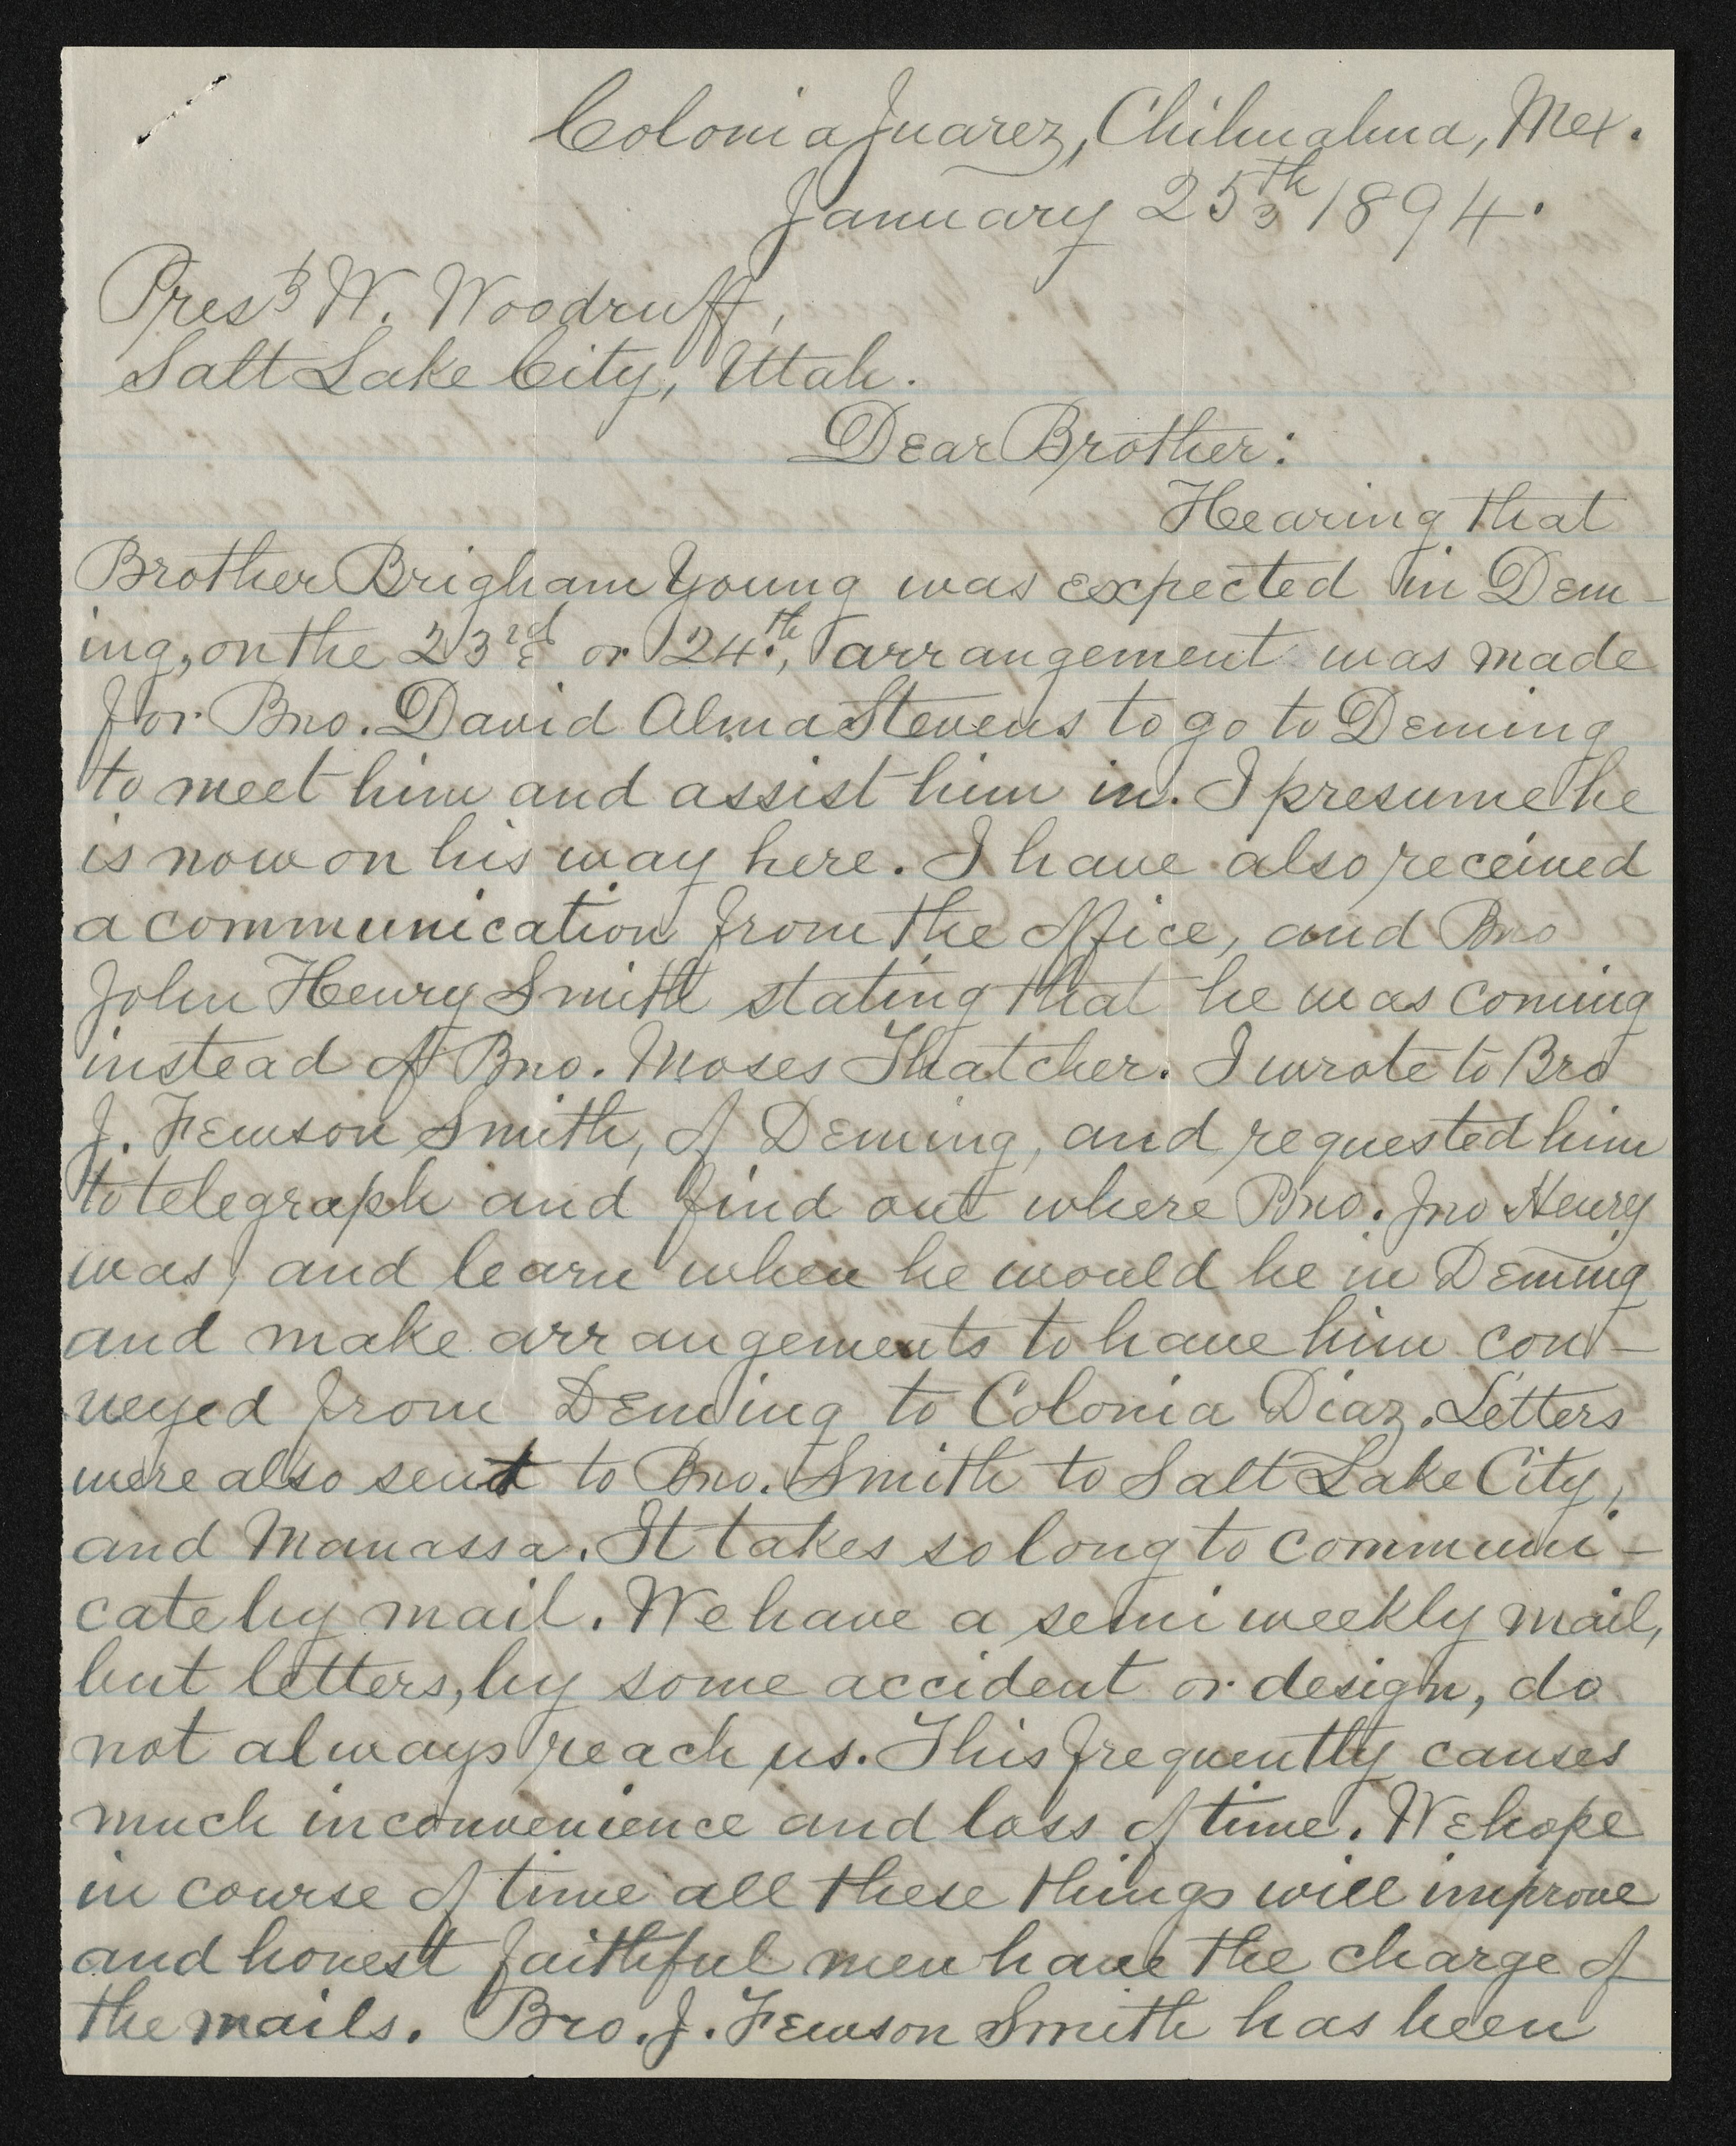 Colonia Juarez, Chihuahua, Mex.
January 25th 1894.
Prest W. Woodruff,
Salt Lake City, Utah.
Dear Brother:
Hearing that
Brother Brigham Young was expected in Dem-
ing, on the 23rd or 24th, arrangement was made
for Bro. David Alma Stevens to go to Deming
to meet him and assist him in. I presume he
is now on his way here. I have also received
a communication from the office, and Bro
John Henry Smith stating that he was coming
instead of Bro. Moses Thatcher. I wrote to Bro
J. Fewson Smith, of Deming, and requested him
to telegraph and find out where Bro. Jno Henry
was, and learn when he would be in Deming
and make arrangements to have him con-
veyed from Deming to Colonia Diaz. Letters
were also sent to Bro. Smith to Salt Lake City,
and Manassa. It takes so long to communi-
cate by mail. We have a semi weekly mail,
but letters, by some accident or design, do
not always reach us. This frequently causes
much inconvenience and loss of time. We hope
in course of time all these things will improve
and honest faithful men have the charge of
the mails. Bro. J. Fewson Smith has been